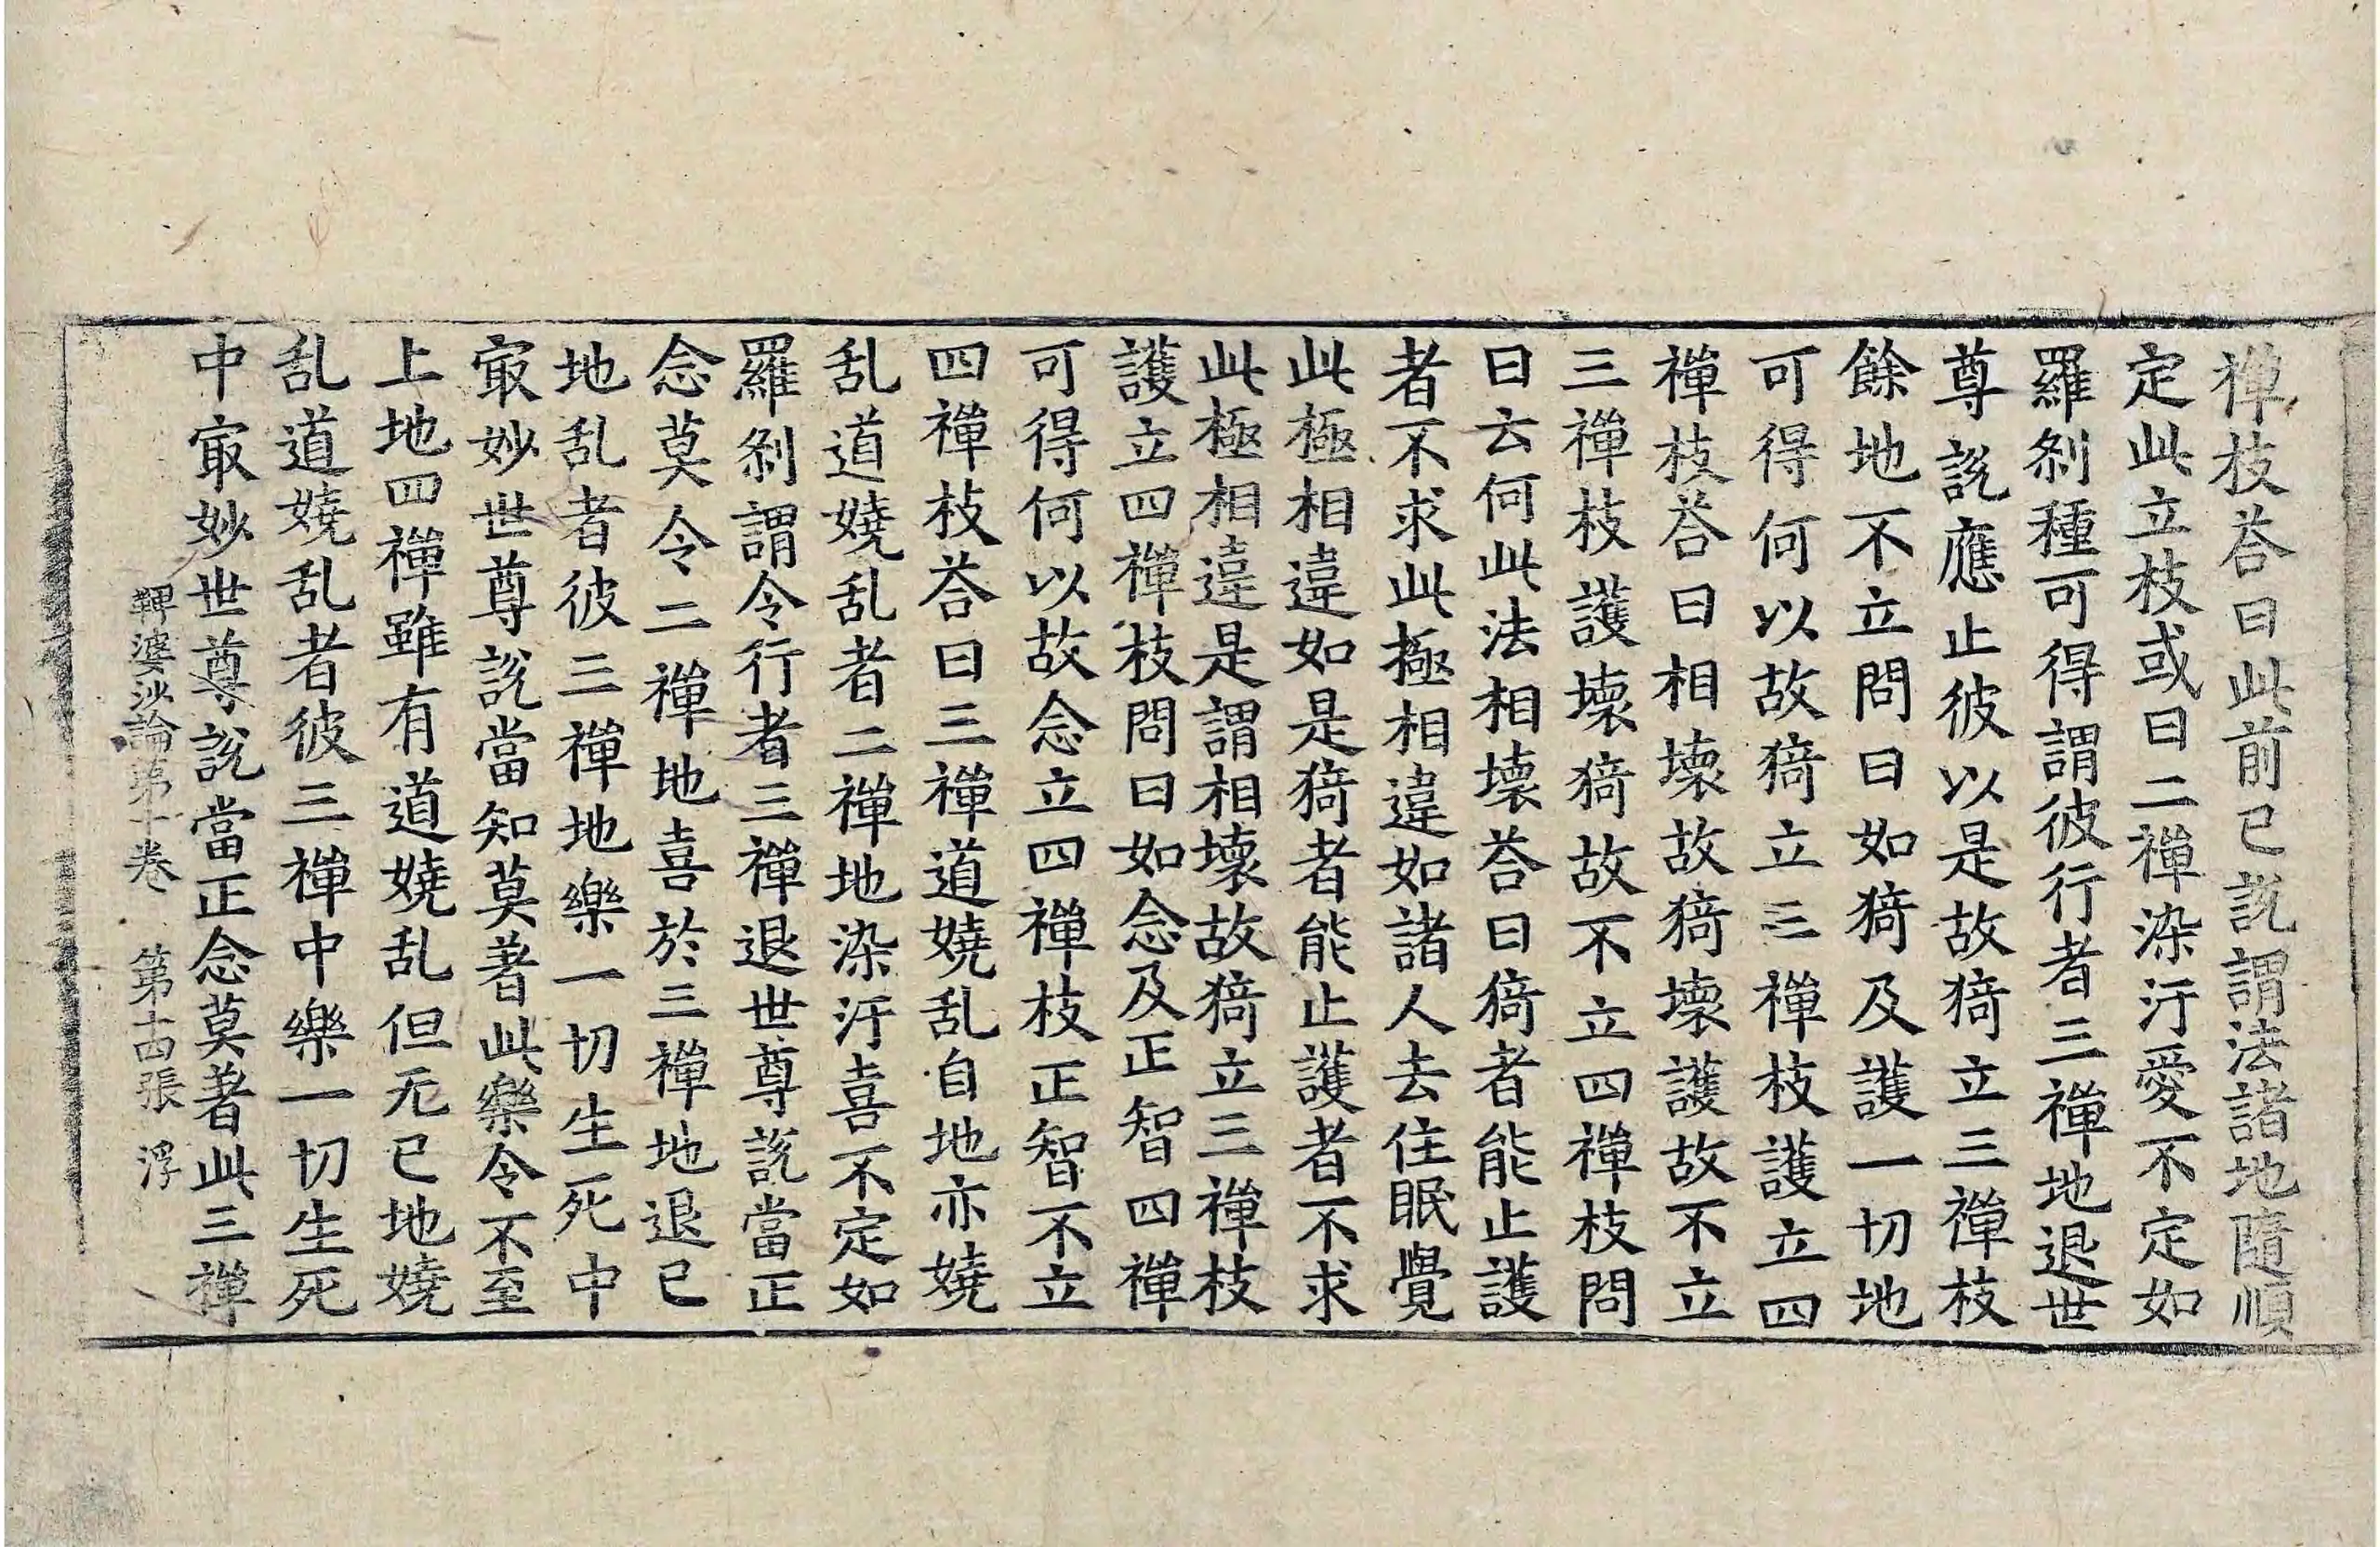 禪枝荅曰此前已說謂法諸地隨順
定此立枝或曰二禪染汙愛不定如
羅刹種可得謂彼行者三禪地退世
尊說應止彼以是故猗立三禪枝
餘地不立問曰如猗及護一切地
可得何以故猗立三禪枝護立四
禪枝荅曰相壞故猗壞護故不立
三禪枝護壞猗故不立四禪枝問
曰云何此法相壞荅曰猗者能止護
者不求此極相違如諸人去住眠覺
此極相違如是猗者能止護者不求
此極相違是謂相壞故猗立三禪枝
護立四禪枝問曰如念及正智四禪
可得何以故念立四禪枝正智不立
四禪枝荅曰三禪道嬈乱自地亦嬈
乱道嬈乱者二禪地染汙喜不定如
羅刹謂令行者三禪退世尊說當正
念莫令二禪地喜於三禪地退已
地乱者彼三禪地樂一切生死中
㝡妙世尊說當知莫著此樂令不至
上地四禪雖有道嬈乱但无已地嬈
乱道嬈乱者彼三禪中樂一切生死
中㝡妙世尊說當正念莫著此三禪
鞞婆沙論第十卷　第十四張　浮